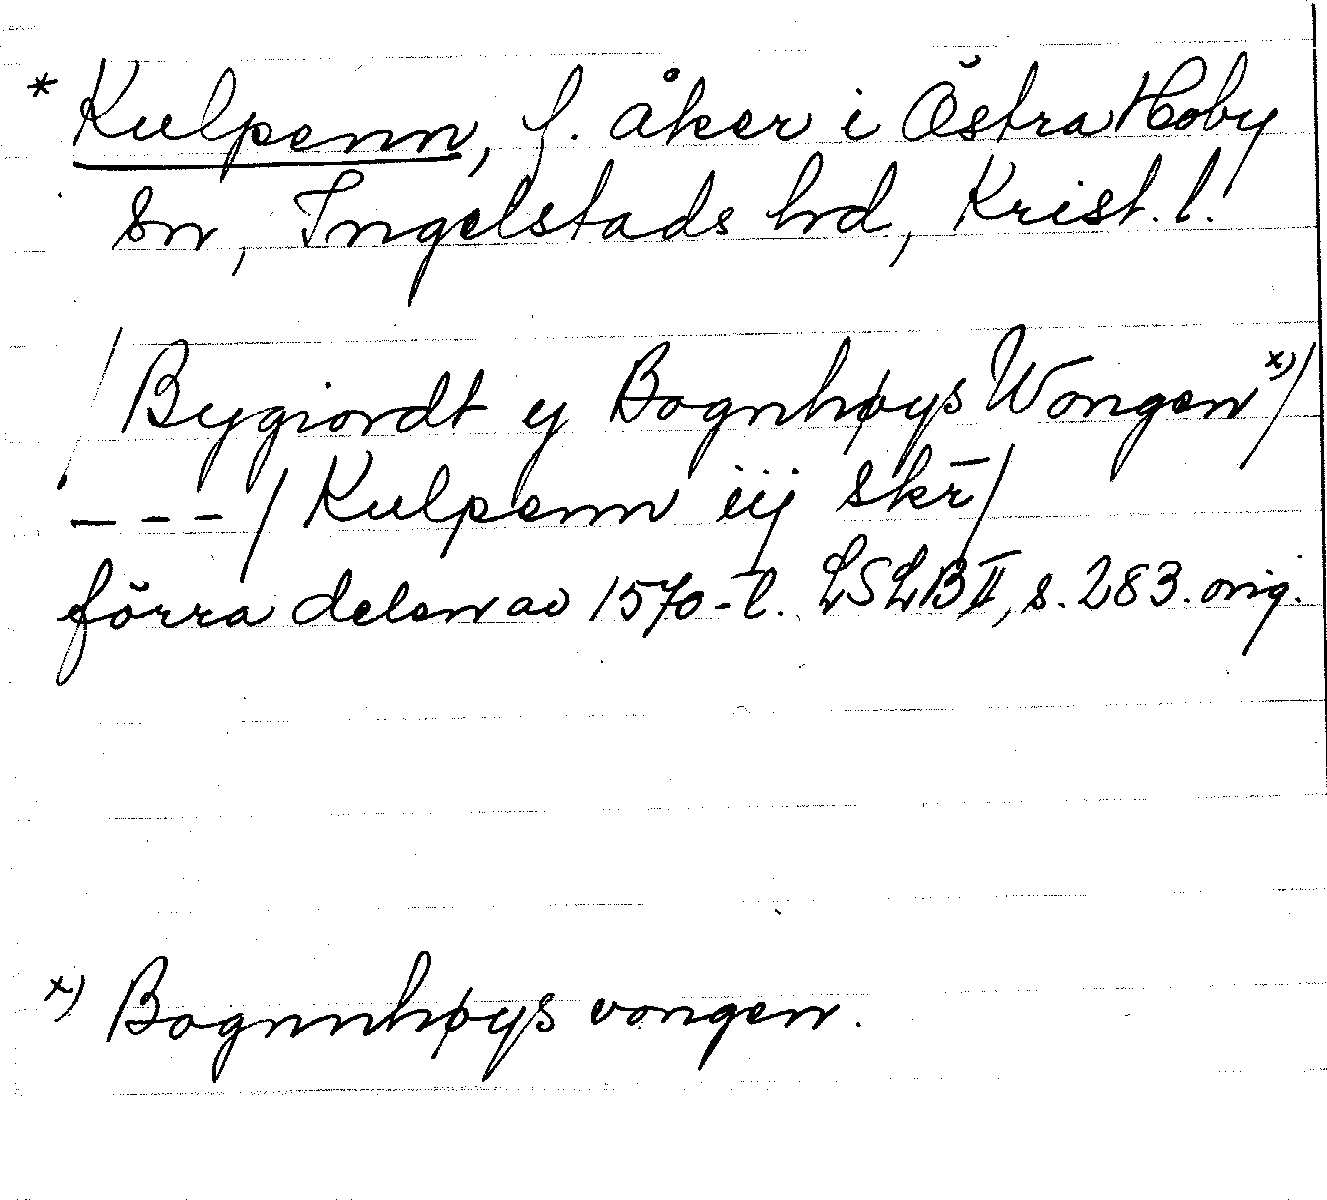 * Kulpenn, f. åker i Östra Hoby
sn, Ingelstads hd, Krist. l.
/ Bygiordt y Bognhøys Wongen x)/
- - - / Kulpenn iij skr̄ /
förra delen av 1570-t. LSLB II, s. 283. orig.
x) Bognnhøys vongen.